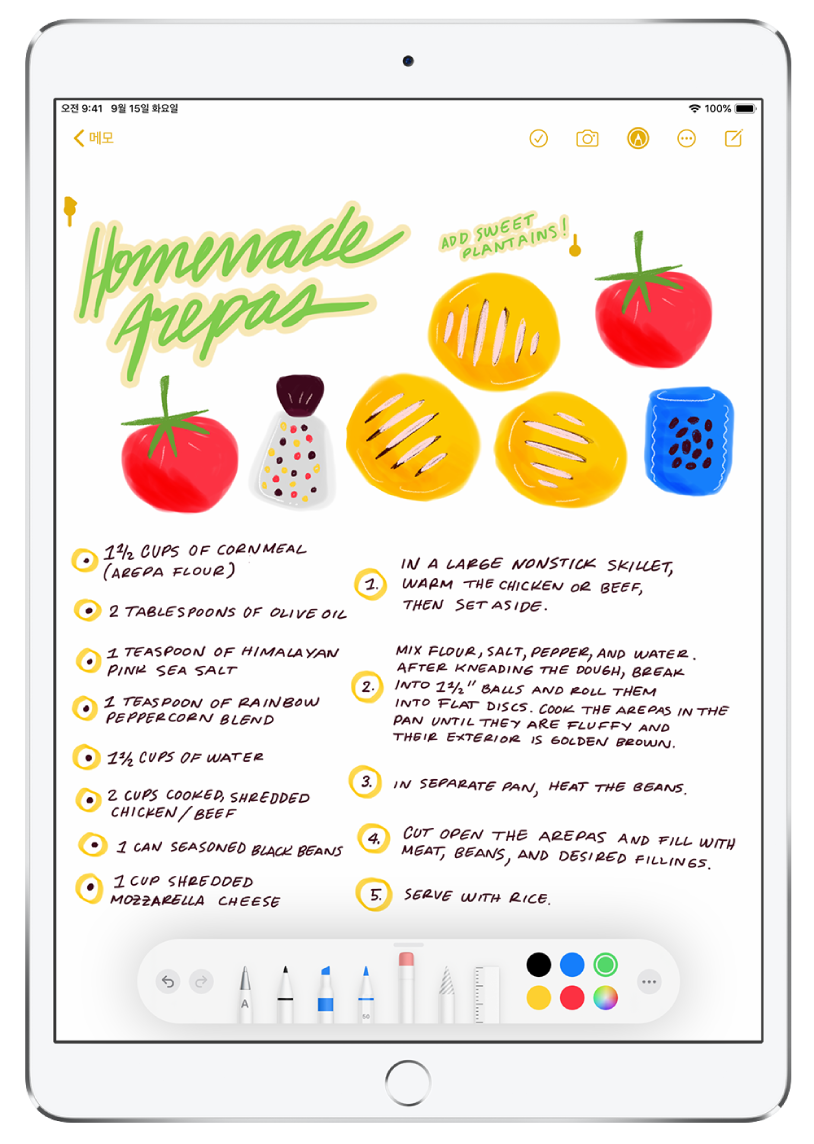 오전 9:41 9월 15일 화요일
100%
메모
Homemade
Arepas
ADD SWEET
PLANTAINS!
1 1/2 CUPS OF CORNMEAL
(AREPA FLOUR)
2 TABLESPOONS OF OLIVE OIL
1 TEASPOON OF HIMALAYAN
PINK SEA SALT
1 TEASPOON OF RAINBOW
PEPPERCORN BLEND
1 1/2 CUPS OF WATER
2 CUPS COOKED, SHREDDED
CHICKEN/BEEF
1 CAN SEASONED BLACK BEANS
1 CUP SHREDDED
MOZZARELLA CHEESE
1. IN A LARGE NONSTICK SKILLET,
WARM THE CHICKEN OR BEEF,
THEN SET ASIDE.
2. MIX FLOUR, SALT, PEPPER, AND WATER.
AFTER KNEADING THE DOUGH, BREAK
INTO 1 1/2" BALLS AND ROLL THEM
INTO FLAT DISCS. COOK THE AREPAS IN THE
PAN UNTIL THEY ARE FLUFFY AND
THEIR EXTERIOR IS GOLDEN BROWN.
3. IN SEPARATE PAN, HEAT THE BEANS.
4. CUT OPEN THE AREPAS AND FILL WITH
MEAT, BEANS, AND DESIRED FILLINGS.
5. SERVE WITH RICE.
A
50